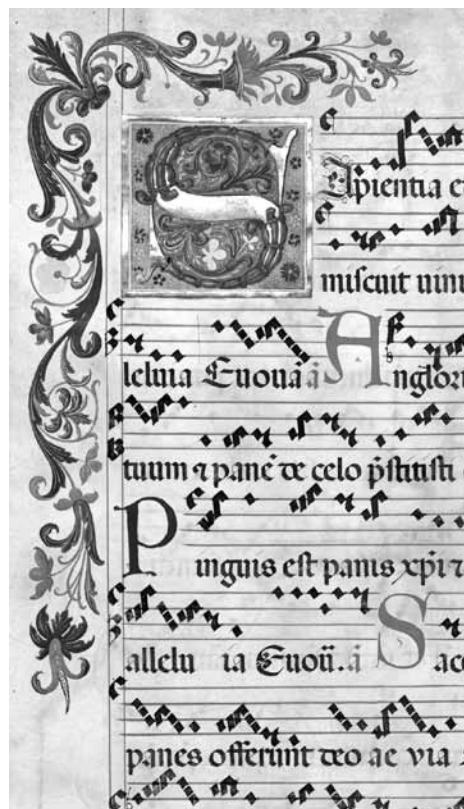 Sapientia e
miscuit uinu
leluia Euouã ã Anglor
tuum ⁊ pane᷒ de celo p̄stitisti
Pinguis est panis xp̄i ⁊
allelu ia Euoü. ã Sace
panes offerunt deo ac via